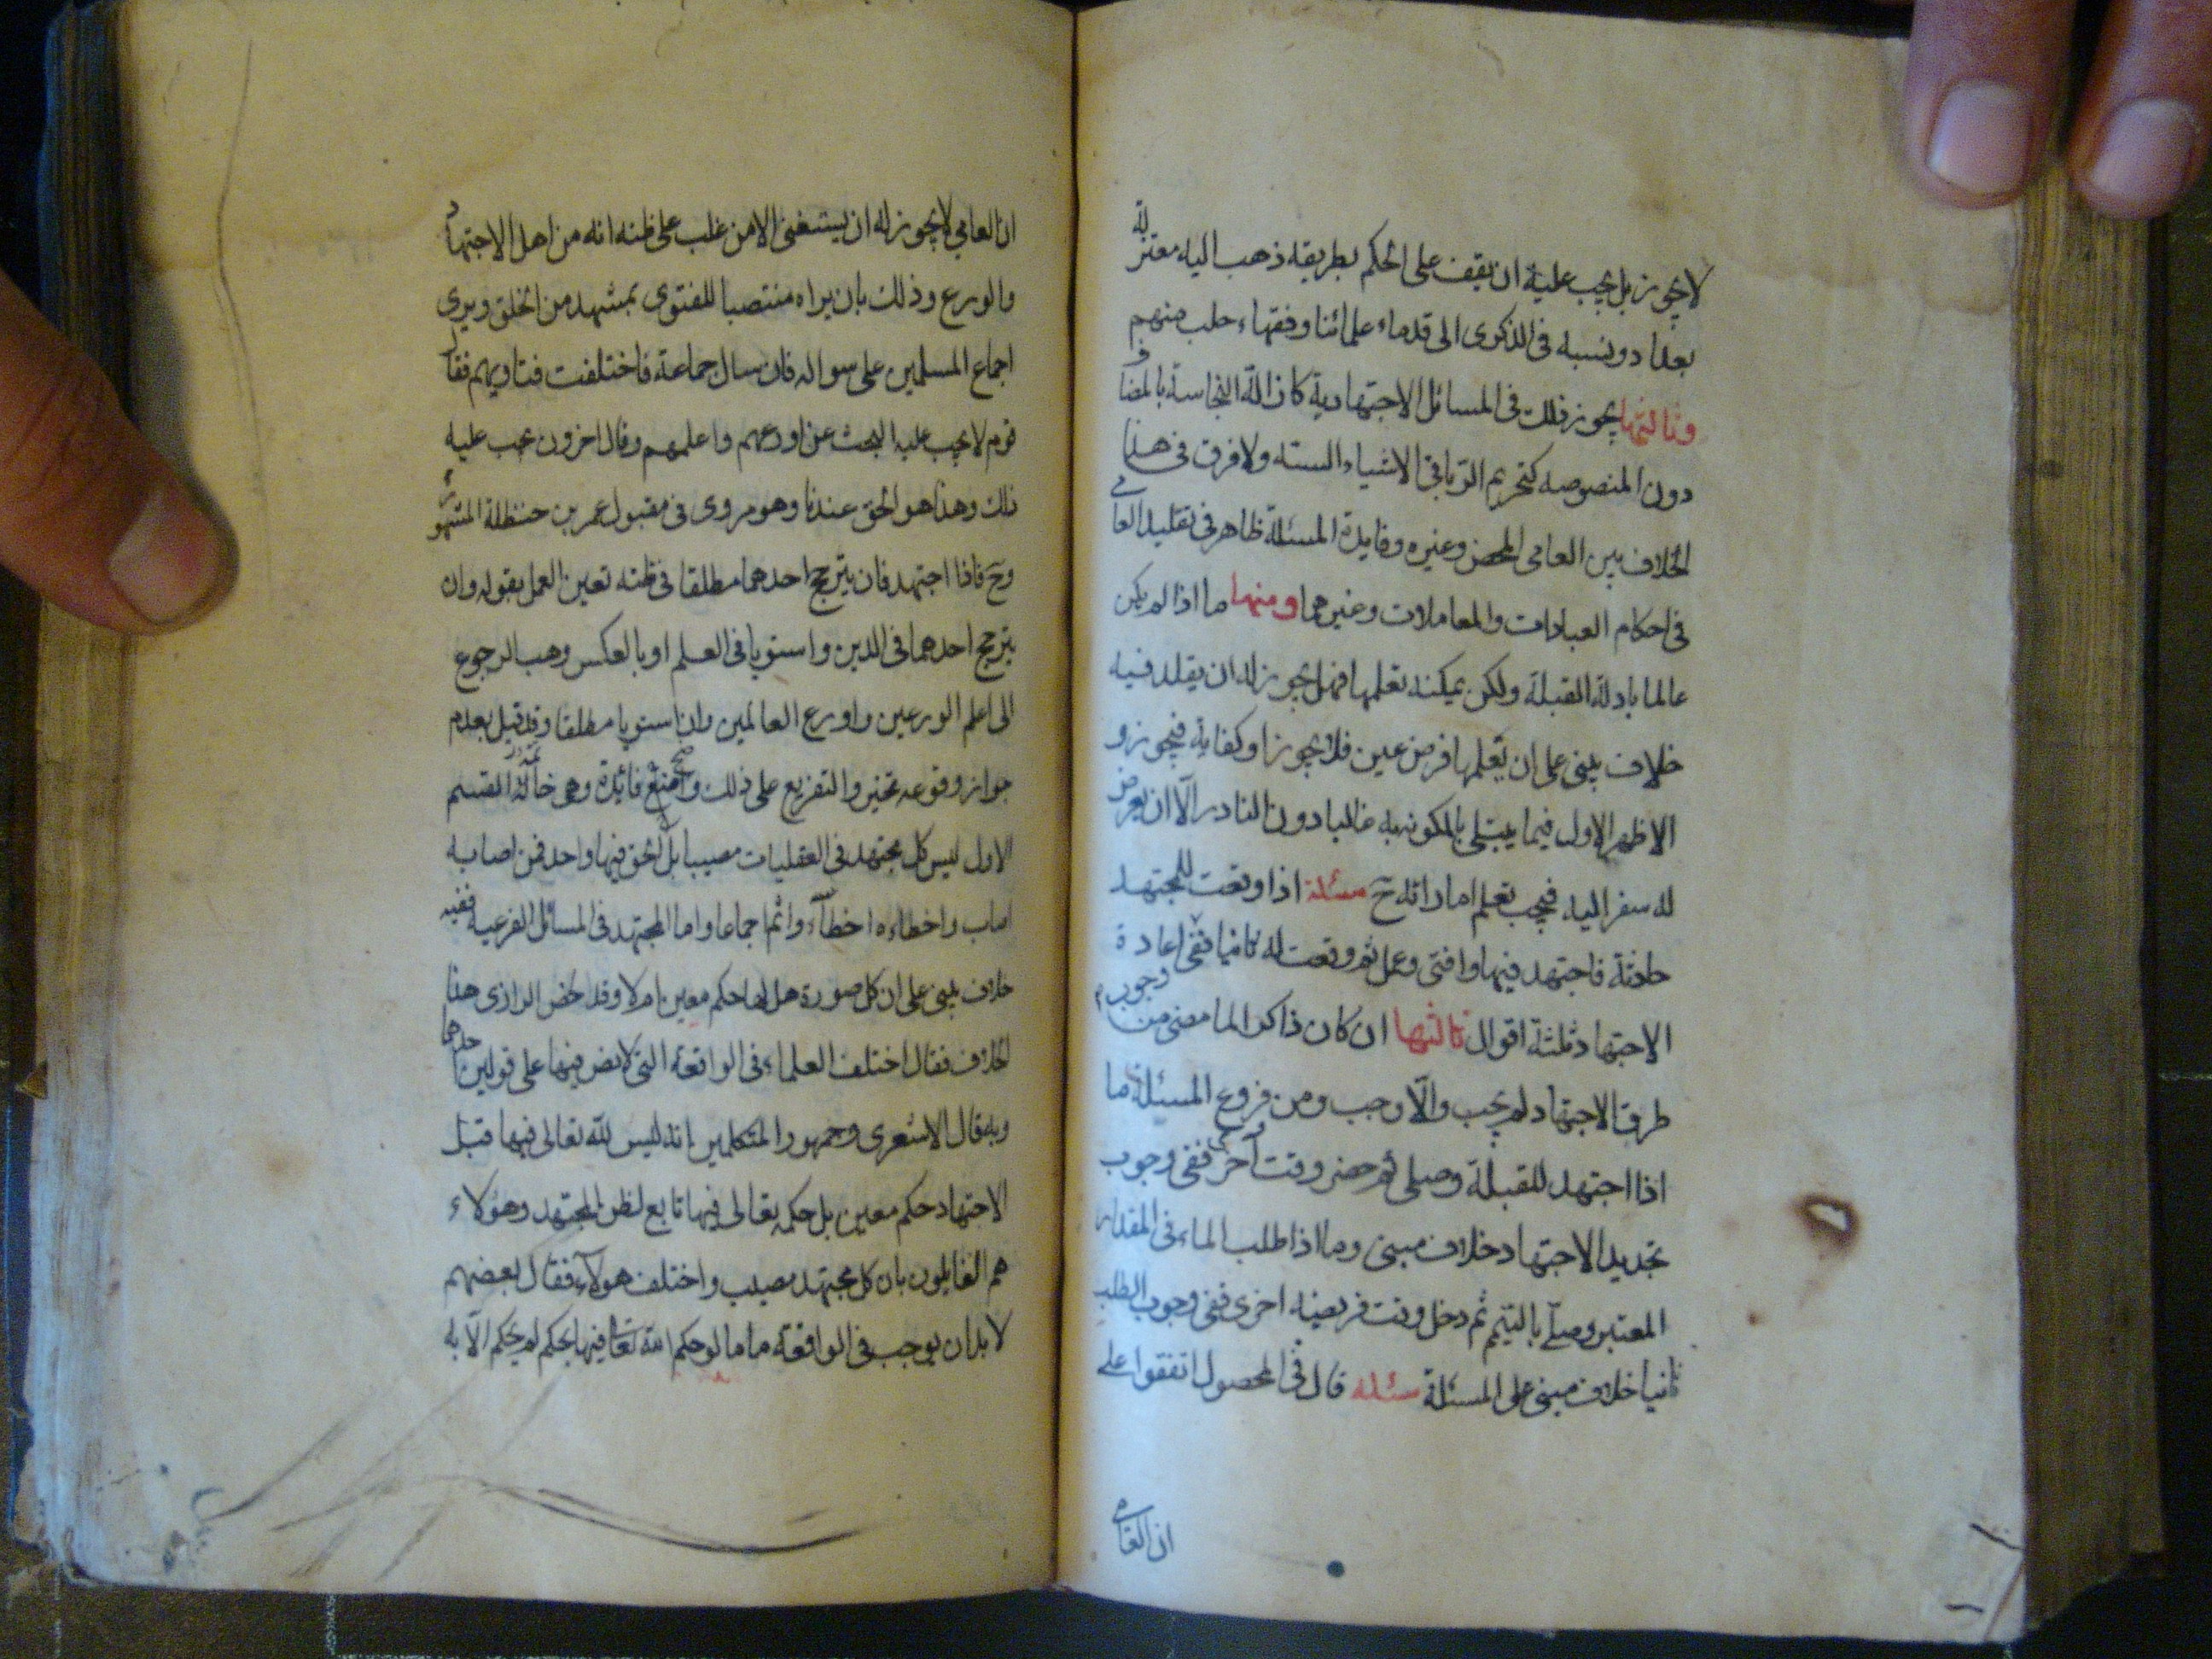 لا يجوز بل يجب عليه ان يقف على الحكم بطريقه ذهب اليه معتزلة
بغداد ونسبه في الذكرى الى قدماء علمائنا وفقهاء حلب منهم
وثالثها يجوز ذلك في المسائل الاجتهادية كازالة النجاسة بالمضاف
دون المنصوصه كتحريم الربا في الاشياء الستة ولا فرق في هذا
الخلاف بين العامي المحض وغيره وفايدة المسئلة ظاهر في تقليد العامي
في احكام العبادات والمعاملات وغيرهما ومنها ما اذا لم يكن
عالما بادلة القبلة ولكن يمكنه تعلمها فهل يجوز له ان يقلد فيه
خلاف يبنى على ان تعلمها فرض عين فلا يجوز او كفاية فيجوز و
الاظهر الاول فيما يبتلى بالمكونه به غالبا دون النادر الا ان يعرض
له سفر اليه فيجب تعلم اماراته ح مسئلة اذا وقعت للمجتهد
حادثة فاجتهد فيها وافتى وعمل ثم وقعت له ثانيا ففي اعادة
الاجتهاد ثلثة اقوال ثالثها ان كان ذاكرا لما مضى من وجوب
طرق الاجتهاد لم يجب والا وجب ومن فروع المسئلة ما
اذا اجتهد للقبلة وصلى ثم حضر وقت اخرى ففي وجوب
تجديد الاجتهاد خلاف مبنى وما اذا طلب الماء في المقدار
المعتبر وصلى بالتيمم ثم دخل وقت فريضة اخرى ففي وجوب الطلب
ثانيا خلاف مبنى على المسئلة مسئلة قال في المحصول اتفقوا على
ان العامي
ان العامي لا يجوز له ان يستفتى الا من غلب على ظنه انه من اهل الاجتهاد
والورع وذلك بان يراه منتصبا للفتوى بمشهد من الخلق ويرى
اجماع المسلمين على سواله فان سال جماعة فاختلفت فتاويهم فقال
قوم لا يجب عليه البحث عن اورعهم واعلمهم وقال اخرون يجب عليه
ذلك وهذا هو الحق عندنا وهو مروى في مقبول عمر بن حنظلة المشهور
وح فاذا اجتهد فان يترجح احدهما مطلقا في ظنه تعين العمل بقوله وان
يترجح احدهما في الدين واستويا في العلم او بالعكس وهب الرجوع
الى اعلم الورعين واورع العالمين وان استويا مطلقا وقد قيل بعدم
جواز وقوعه تخير والتفريع على ذلك واضح فائدة وهي خاتمة القسم
الاول ليس كل مجتهد في العقليات مصيبا بل الحق فيها واحد فمن اصابه
اصاب واخطاءه اخطأ واثم اجماعا واما المجتهد في المسائل الفرعية ففيه
خلاف يبنى على ان كل صورة هل لها حكم معين ام لا وقد لخص الرازى هذا
الخلاف فقال اختلف العلماء في الواقعة التي لا نص فيها على قولين احدهما
وبه قال الاشعرى وجمهور المتكلمين انه ليس لله تعالى فيها قبل
الاجتهاد حكم معين بل حكمه تعالى فيها تابع لظن المجتهد وهؤلاء
هم القايلون بان كل مجتهد مصيب واختلف هولاء فقال بعضهم
لا بد ان يوجب في الواقعة ما ما لو حكم الله تعالى فيها بحكم لم يحكم الا به